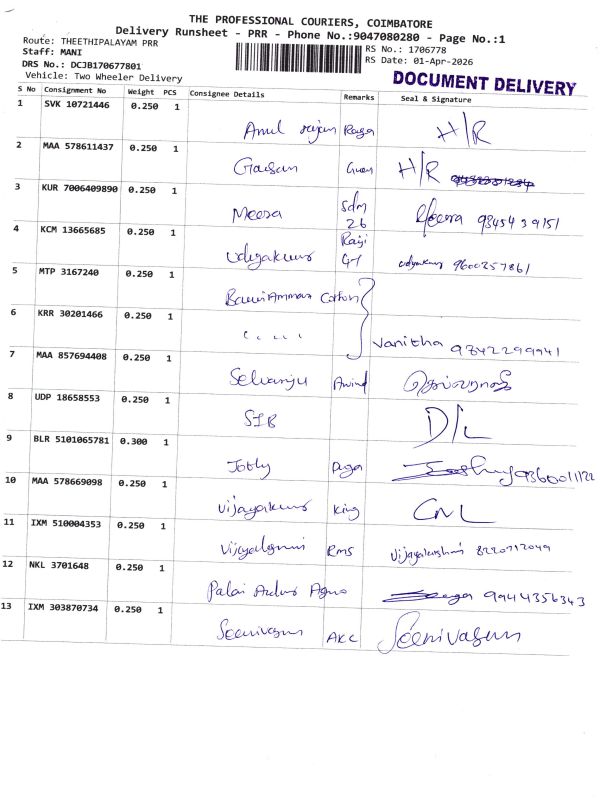 THE PROFESSIONAL COURIERS, COIMBATORE
Delivery Runsheet - PRR - Phone No.:9047080280 - Page No.:1
Route: THEETHIPALAYAM PRR
RS No.: 1706778
Staff: MANI
RS Date: 01-Apr-2026
DRS No.: DCJB170677801
Vehicle: Two Wheeler Delivery
DOCUMENT DELIVERY
S No Consignment No Weight PCS Consignee Details Remarks Seal & Signature
1 SVK 10721446 0.250 1
H/R
2 MAA 578611437 0.250 1
H/R
3 KUR 7006409890 0.250 1
Meera Sdm 26 Meera 98454 39151
4 KCM 13665685 0.250 1
Udiyakumr G-1 9600257861
5 MTP 3167240 0.250 1
Cotton
6 KRR 30201466 0.250 1
" " " "
Vanitha 9842299941
7 MAA 857694408 0.250 1
Selvaraju Arvind செல்வராஜ்
8 UDP 18658553 0.250 1
SIB D/L
9 BLR 5101065781 0.300 1
9360011122
10 MAA 578669098 0.250 1
Vijayakumr King
11 IXM 510004353 0.250 1
RMS Vijayalakshmi 8220712049
12 NKL 3701648 0.250 1
Palai 9944356343
13 IXM 303870734 0.250 1
Seenivasan AKC Seenivasan